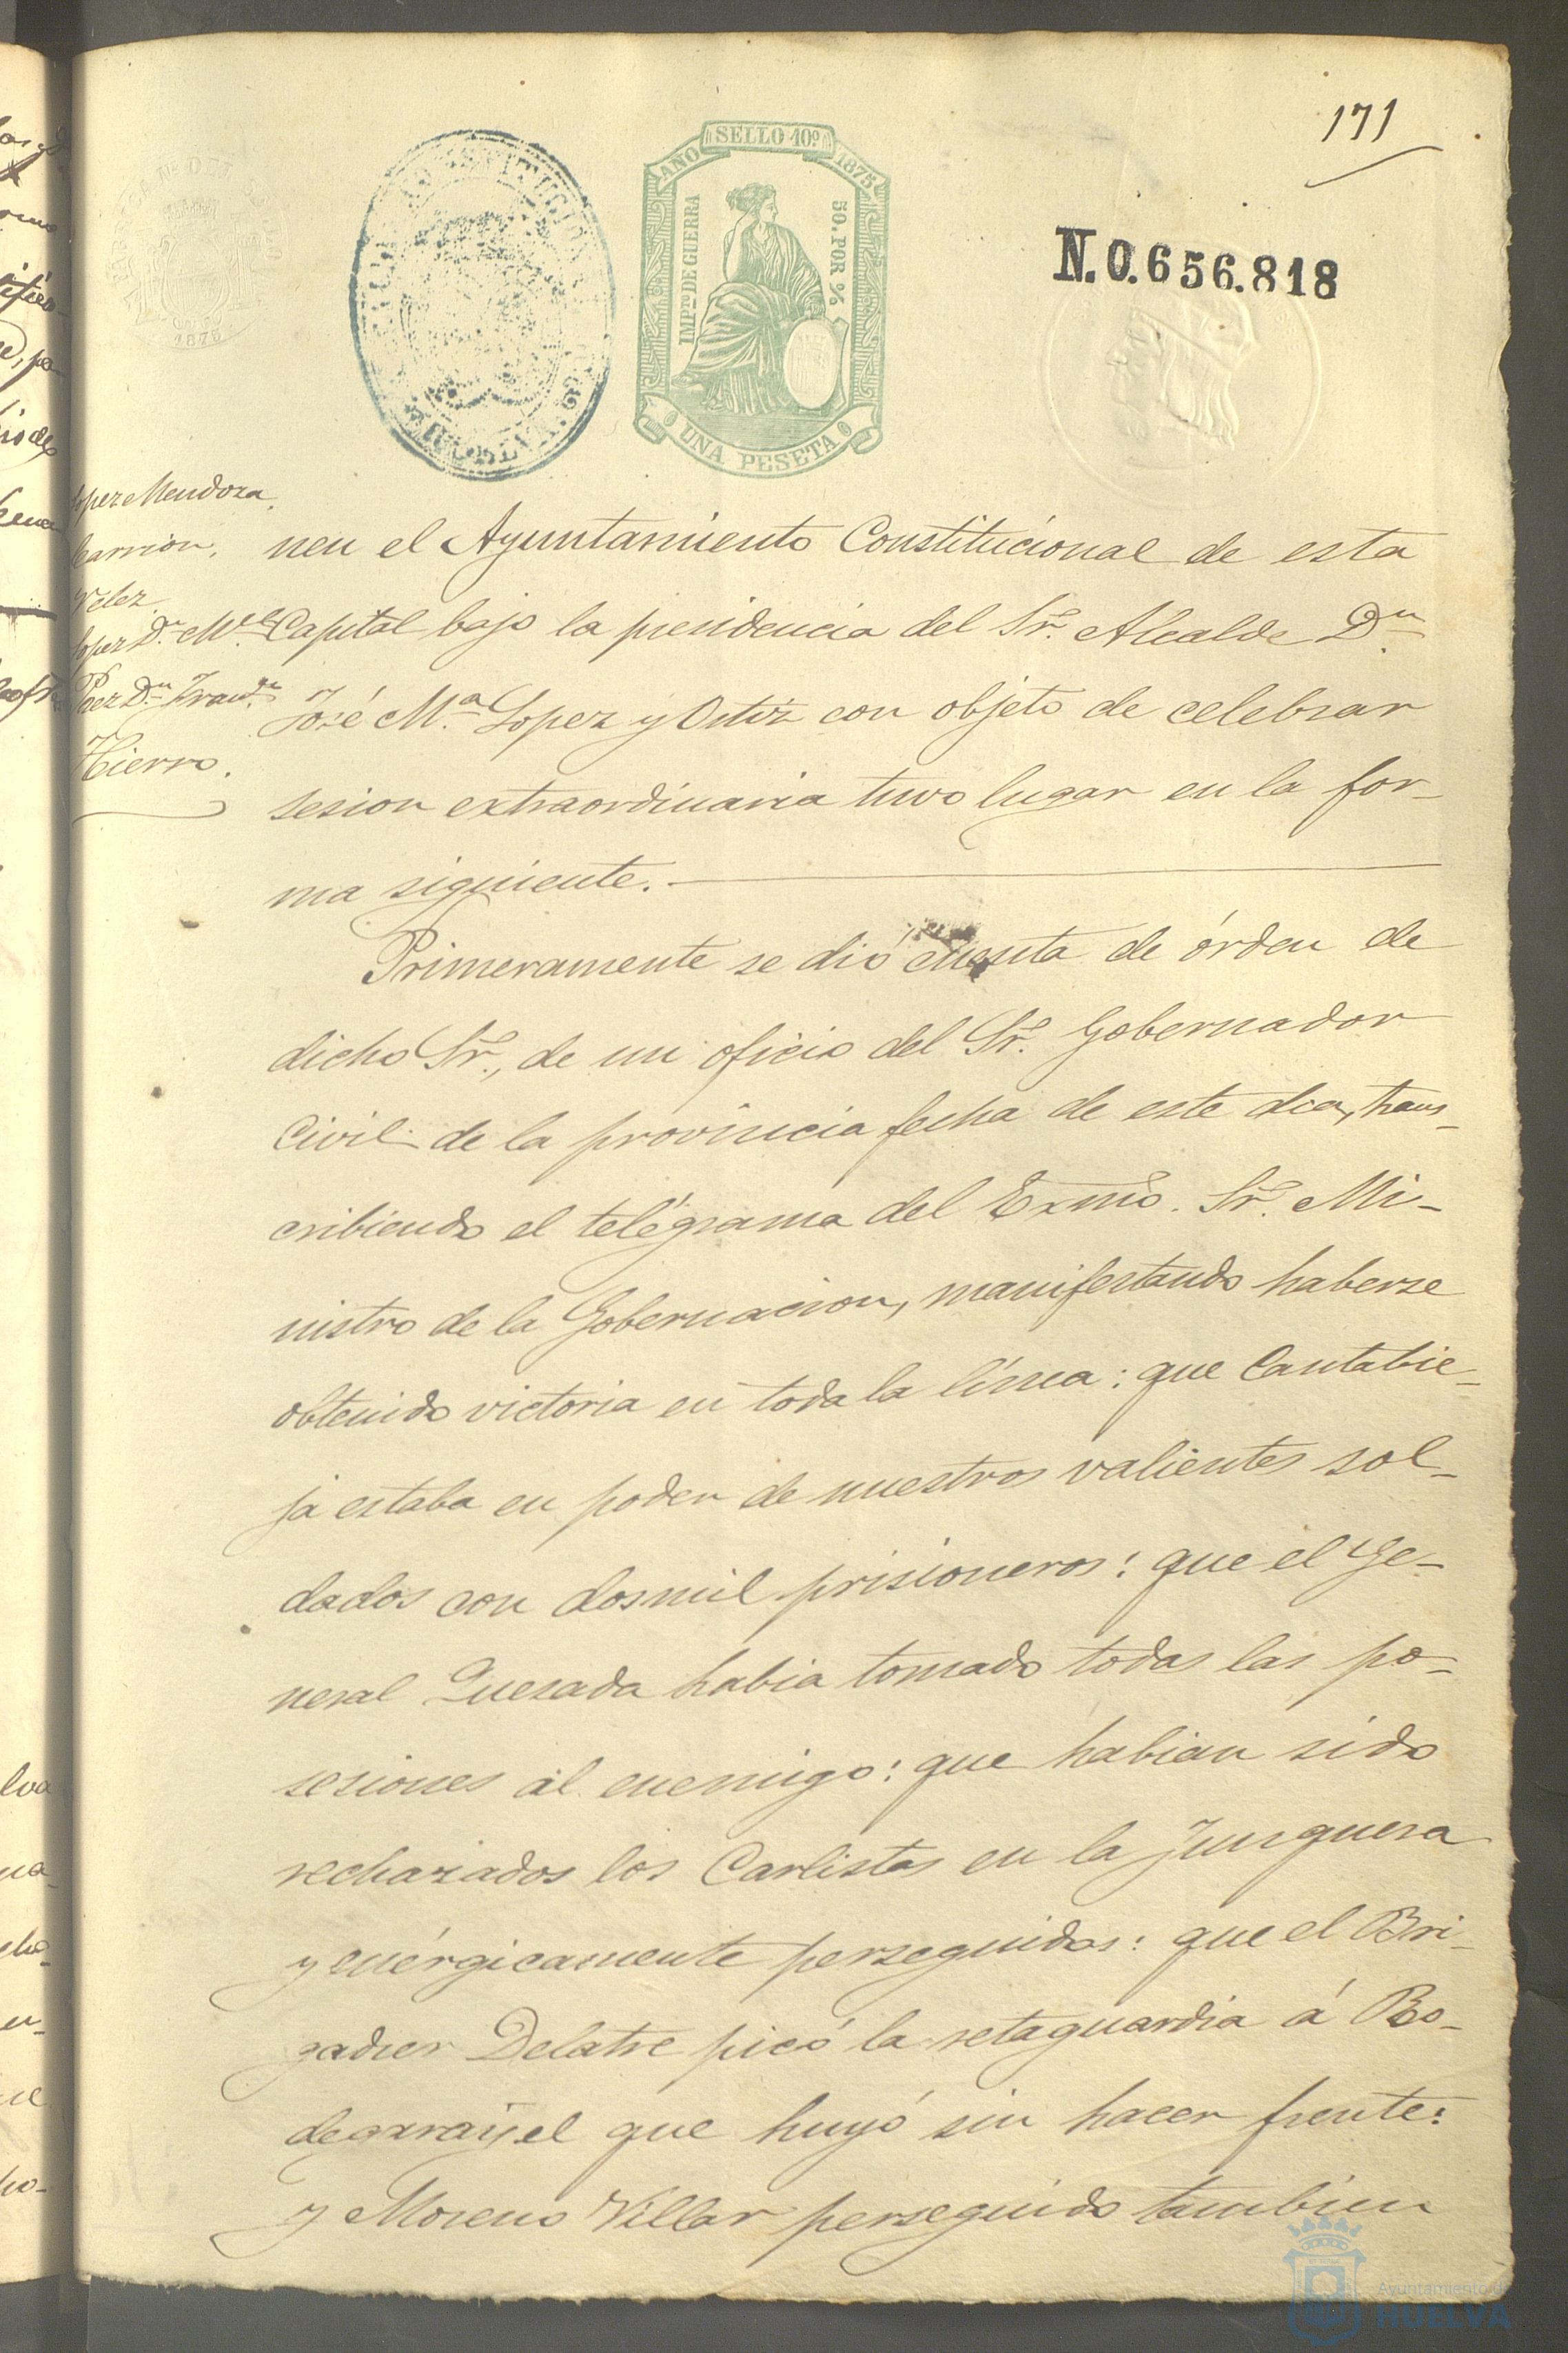 171
AÑO SELLO 10º 1875
IMPTO DE GUERRA
50. POR %
UNA PESETA
N.0.656.818
1875
Lopez Mendoza,
Carrion,
Velez
Lopez Dn. Ml.
Paez Dn. Franco.
Hierro.
nen el Ayuntamiento Constitucional de esta
Capital bajo la presidencia del Sr. Alcalde Dn.
José Ma. Lopez y Ortiz con objeto de celebrar
sesion extraordinaria tuvo lugar en la for-
ma siguiente.
Primeramente se dió cuenta de órden de
dicho Sr., de un oficio del Sr. Gobernador
Civil de la provincia fecha de este dia, trans-
cribiendo el telégrama del Exmo. Sr. Mi-
nistro de la Gobernacion, manifestando haberse
obtenido victoria en toda la línea: que Cantabie-
ja estaba en poder de nuestros valientes sol-
dados con dosmil prisioneros: que el Ge-
neral Quesada habia tomado todas las po-
sesiones al enemigo: que habian sido
rechazados los Carlistas en la Junguera
y enérgicamente perseguidos: que el Bri-
gadier Delatre picó la retaguardia á Bo-
degaray el que huyó sin hacer frente:
y Moreno Villar perseguido tambien
Ayuntamiento de
HUELVA